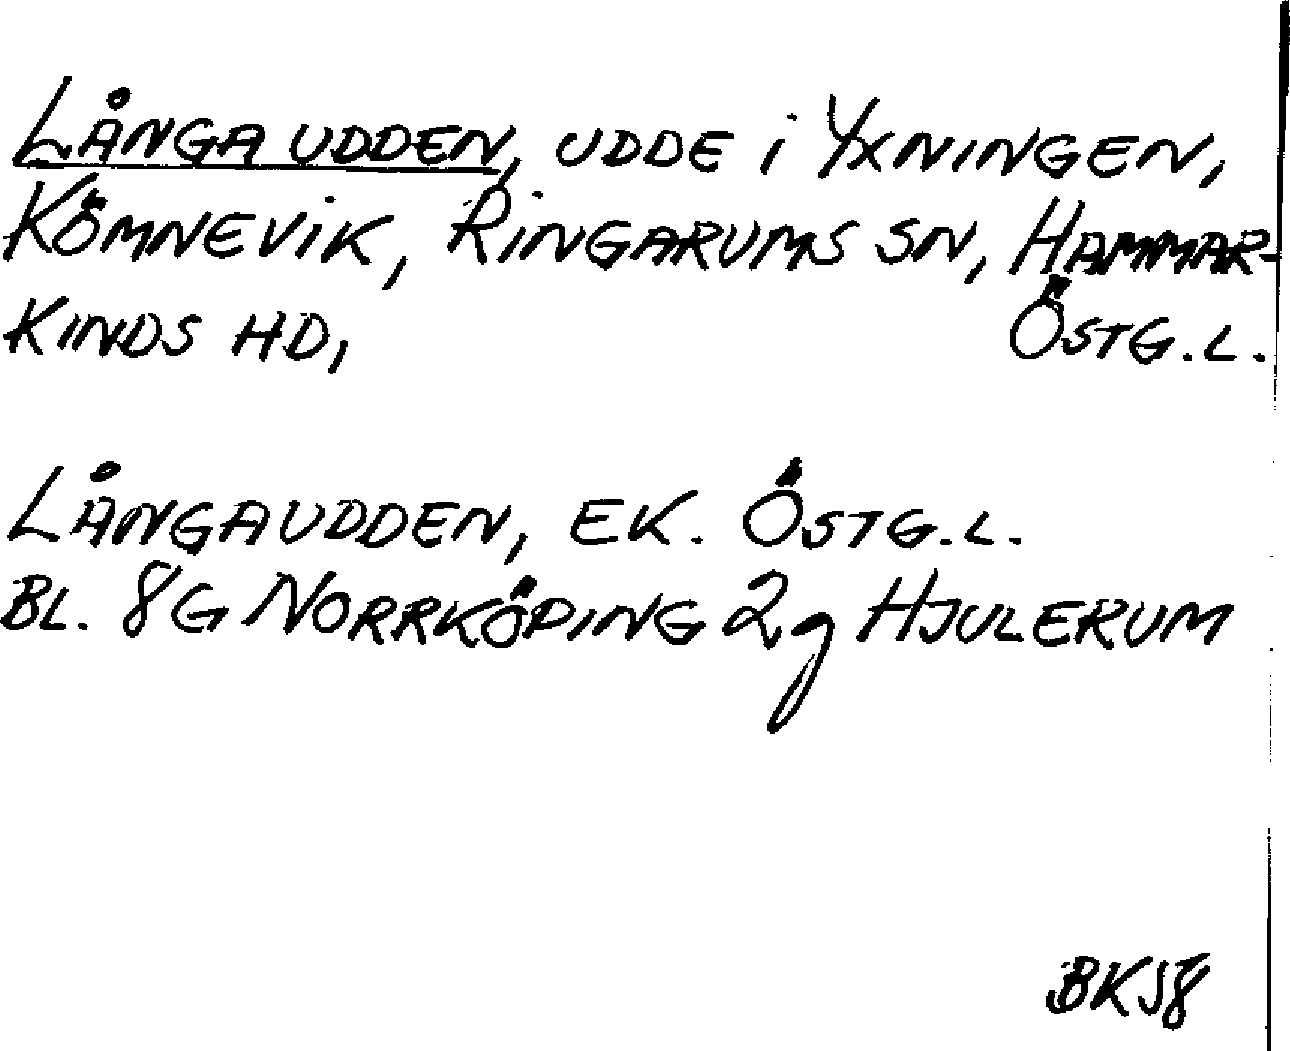 LÅNGA UDDEN, UDDE i YXNINGEN,
KÖMNEVIK, RINGARUMS SN, HAMMAR-
KINDS HD, ÖSTG.L.
LÅNGAUDDEN, EK. ÖSTG.L.
BL. 8G NORRKÖPING 2g HJULERUM